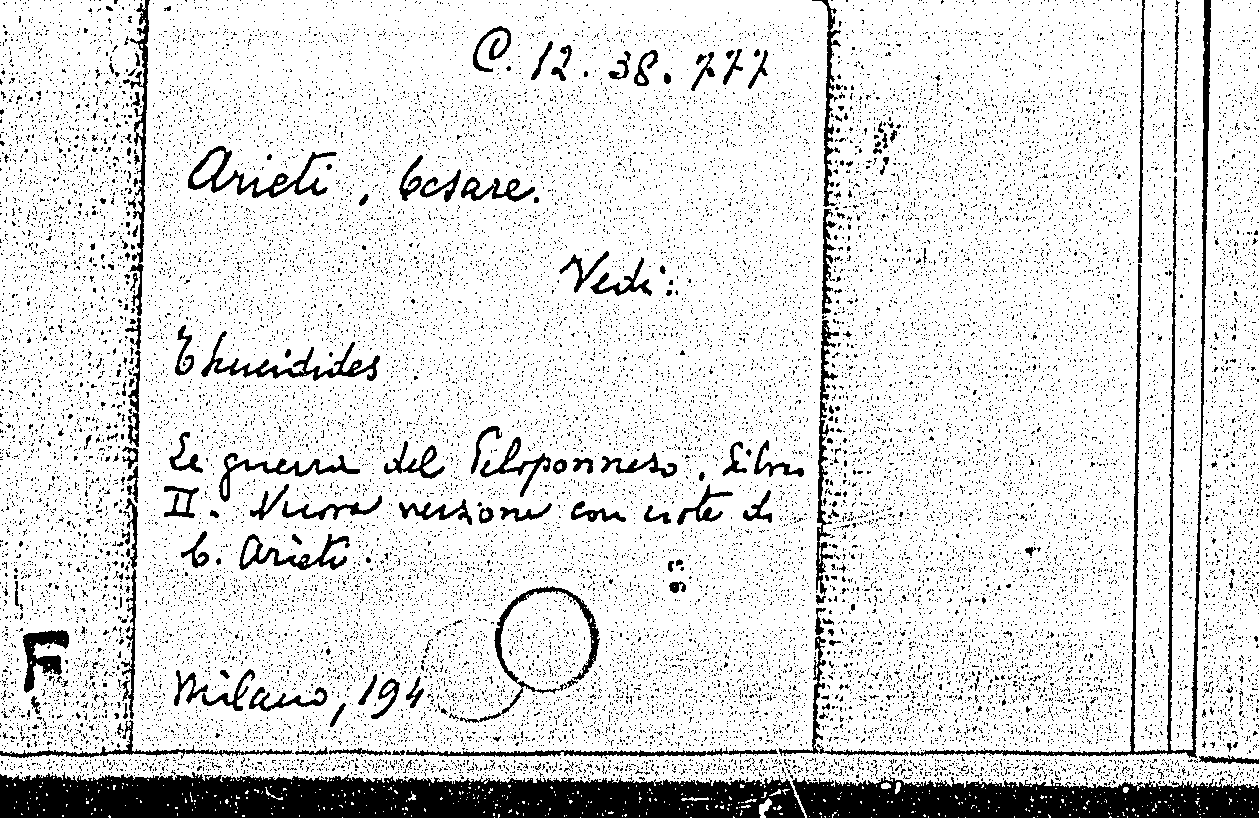 C. 12. 38. 777
Arieti, Cesare.
Vedi:
Thucidides
La guerra del Peloponneso, Libro
II. Nuova versione con note di
C. Arieti.
Milano, 194
F